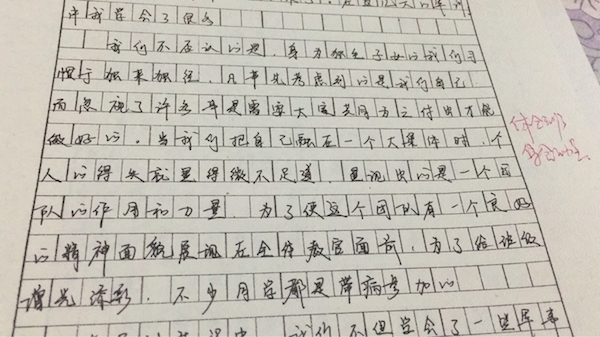 中我学会了很多
我们不否认的是，身为独生子女的我们习
惯于独来独往，凡事先考虑到的是我们自己，
而忽视了许多事是需要大家共同方之付出才能
做好的。当我们把自己融在一个大集体时，个
人的得失就显得微不足道，显现出的是一个团
队的作用和力量。为了使这个团队有一个良好
的精神面貌展现在全体教官面前，为了给班级
增光添彩，不少同学都是带病参加的
我们不但学会了一些军事